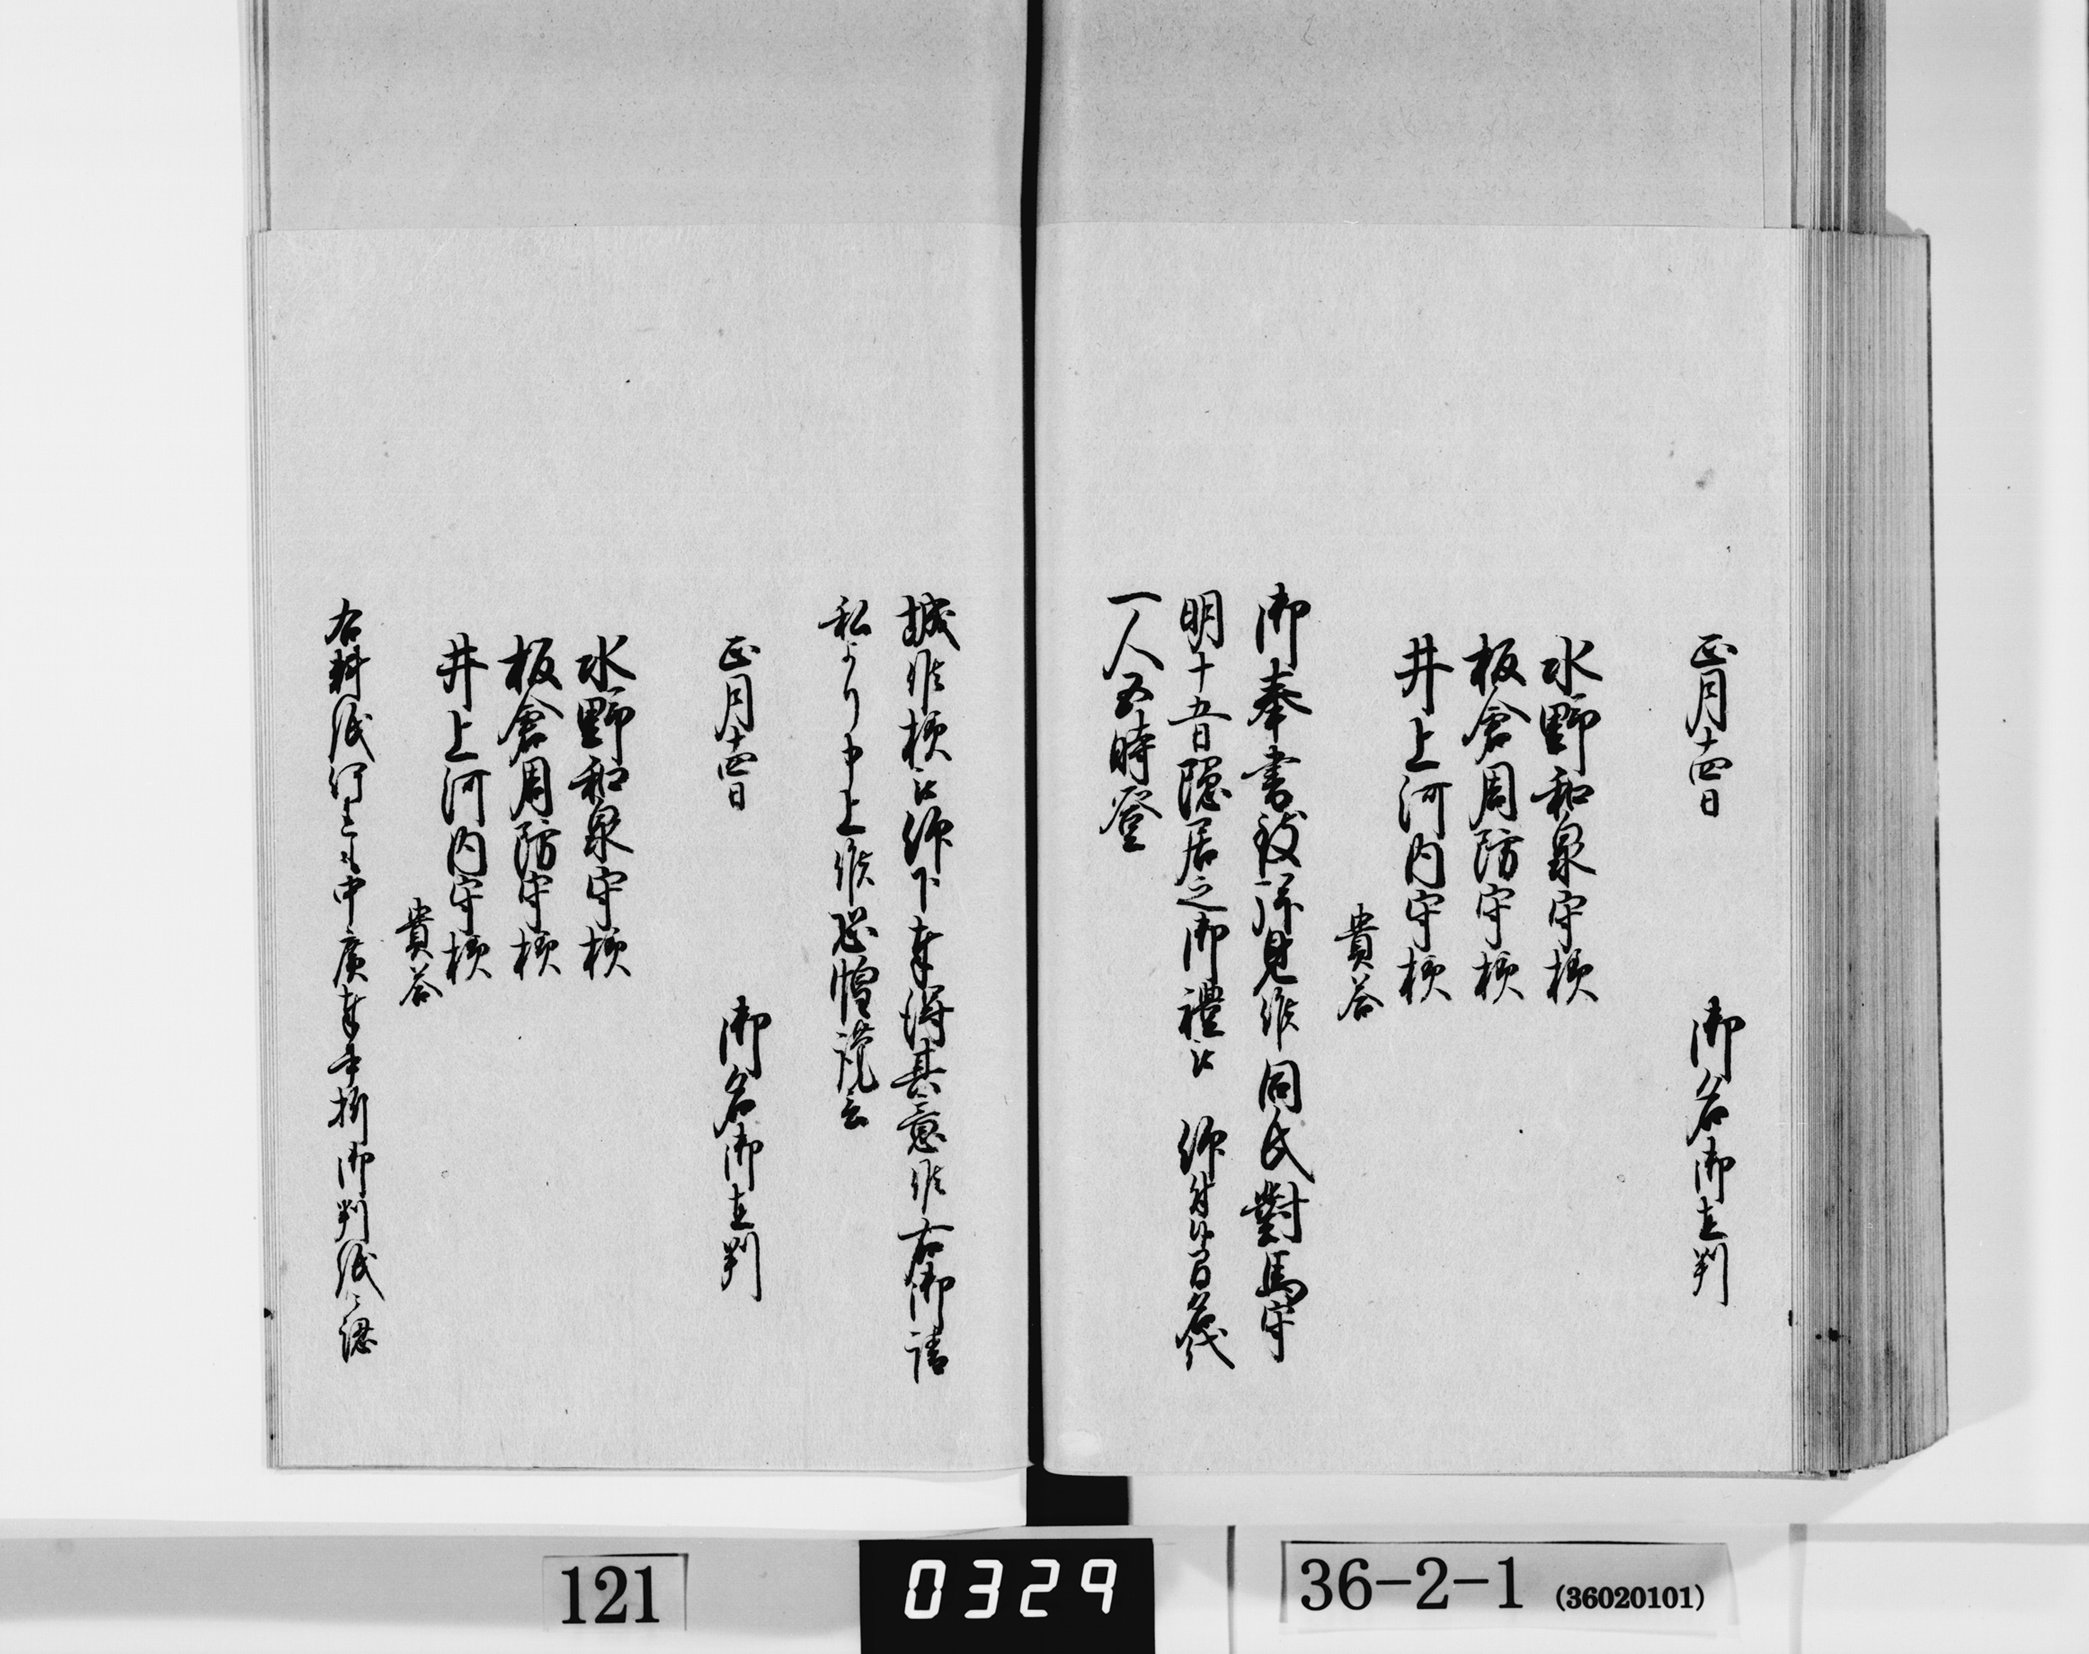 正月十四日　御名御直判
水野和泉守様
板倉周防守様
井上河内守様
貴答
御奉書致拝見候同氏對馬守
明十五日隠居之御禮被　仰付候ニ付名代
一人五時登
城候様被仰下奉得其意候右御請
私より申上候恐惶謹言
正月十四日　御名御直判
水野和泉守様
板倉周防守様
井上河内守様
貴答
右料紙何も中廣奉書折御判紙ニ認
121
0329
36-2-1 (36020101)